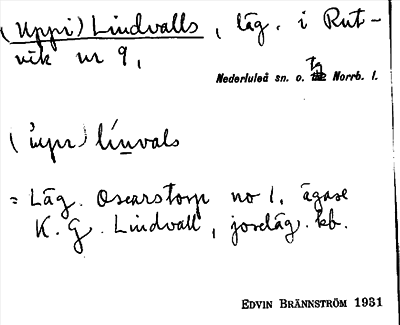 (Uppi) Lindvalls, läg. i Rut-
vik nr 9,
Nederluleå sn. o. Norrb. l.
lí̱nvals
= Läg. Oscarstorp no 1. ägare
K. G. Lindvall, jordäg. kb.
EDVIN BRÄNNSTRÖM 1931